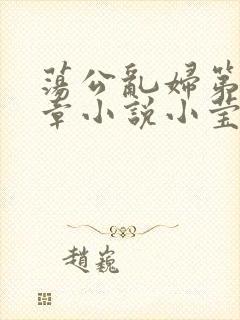 蕩公亂婦第
章小說小莹
趙巍